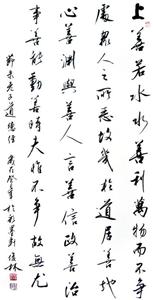 上善若水水善利萬物而不爭
處衆人之所惡故幾於道居善地
心善淵與善人言善信政善治
事善能動善時夫唯不爭故無尤
節录老子道德經